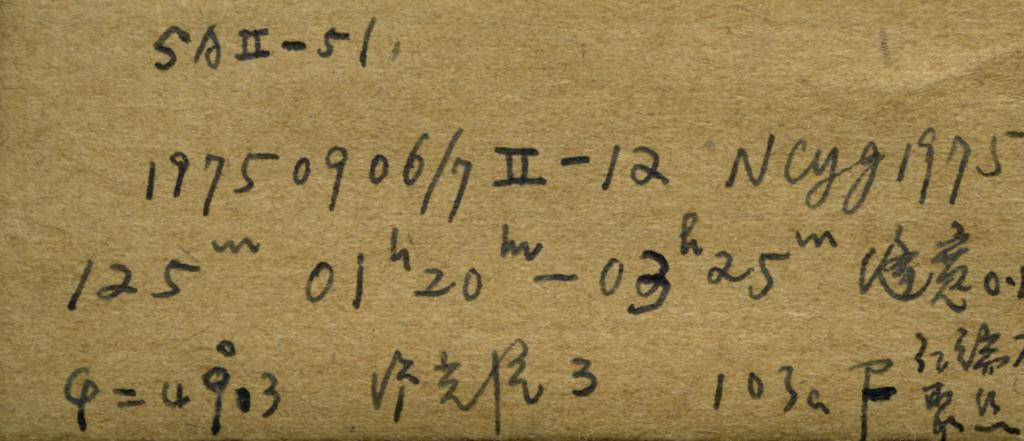 SAII-51.
19750906/7 II-12 NCyg1975
125ᵐ 01ʰ20ᵐ-03ʰ25ᵐ 缝宽0.
φ=49°.3 3 103aF 红端
聚丝